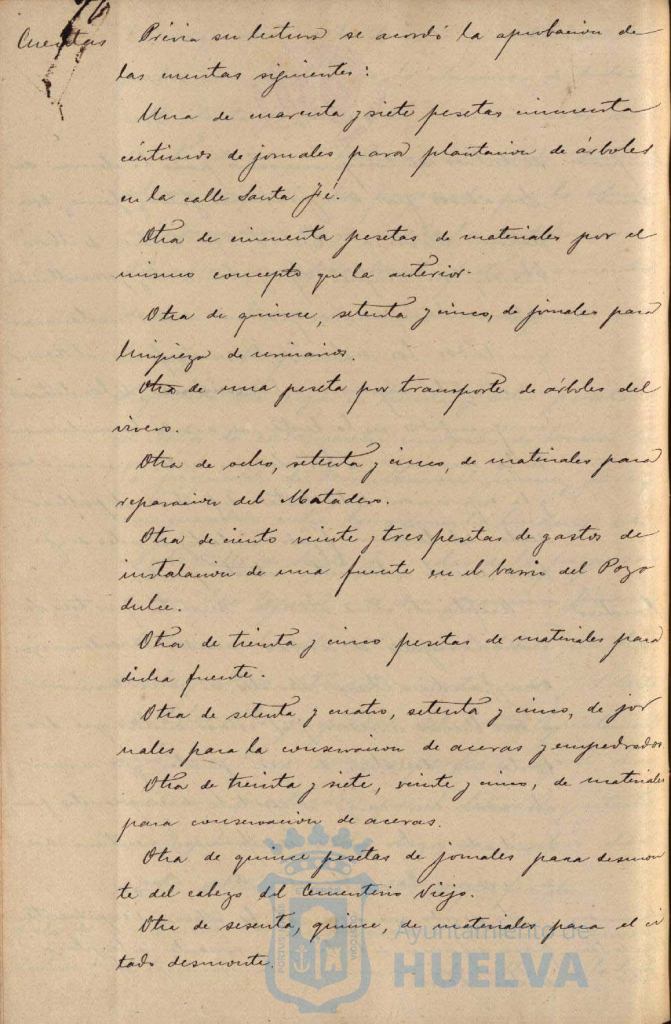 Cuentas Prévia su lectura se acordó la aprobacion de
las cuentas siguientes:
Una de cuarenta y siete pesetas cincuenta
céntimos de jornales para plantacion de árboles
en la calle Santa Fé.
Otra de cincuenta pesetas de materiales por el
mismo concepto que la anterior.
Otra de quince, setenta y cinco, de jornales para
limpieza de urinarios.
Otra de una peseta por transporte de árboles del
vivero.
Otra de ocho, setenta y cinco, de materiales para
reparacion del Matadero.
Otra de ciento veinte y tres pesetas de gastos de
instalacion de una fuente en el barrio del Pozo
dulce.
Otra de treinta y cinco pesetas de materiales para
dicha fuente.
Otra de setenta y cuatro, setenta y cinco, de jor
nales para la conservacion de aceras y empedrados
Otra de treinta y siete, veinte y cinco, de materiales
para conservacion de aceras.
Otra de quince pesetas de jornales para desmon
te del cabezo del Cementerio Viejo.
Otra de sesenta, quince, de materiales para el ci
tado desmonte.
Ayuntamiento de
HUELVA